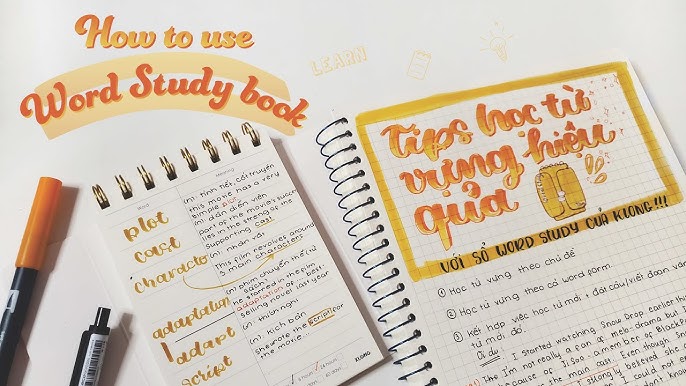 How to use
Word Study book
LEARN
Word
Meaning
plot
(n) tình tiết, cốt truyện
this movie has a very
simple plot
cast
(n) dàn diễn viên
part of the movie's success
lies in the streng of the
supporting cast
character
(n) nhân vật
This film revolves around
3 main characters
adaptation
(n) phim chuyển thể từ
sách
he starred in the film
adaptation of a best
selling novel last year
adapt
(n) thích nghi
script
(n) kịch bản
she wrote the script for
the movie...
KLONG
Tips học từ
vựng hiệu
quả
VỚI SỔ WORD STUDY CỦA KLONG!!!
① Học từ vựng theo chủ đề
② Học từ vựng theo cả word form.
③ Kết hợp việc học từ mới + đặt câu/viết đoạn văn
từ mới đó.
Ví dụ: I started watching Snow Drop earlier this
I'm not really a fan of melo-drama but I
because of Jisoo - a member of BlackP
main cast. Even though
believed she